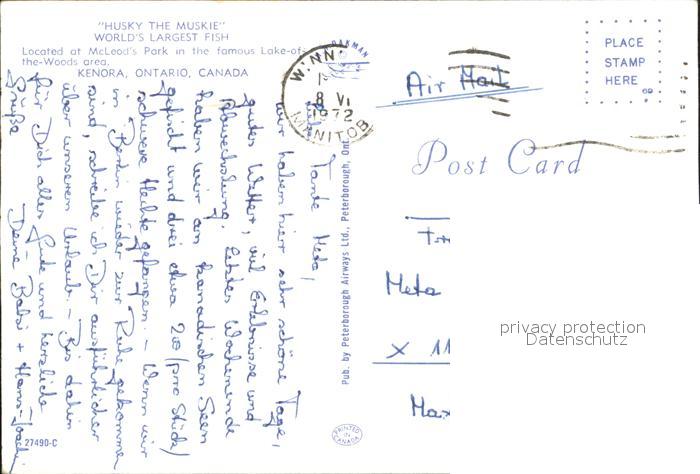 "HUSKY THE MUSKIE"
WORLD'S LARGEST FISH
Located at McLeod's Park in the famous Lake-of-
the-Woods area.
KENORA, ONTARIO, CANADA
Tante Meta,
wir haben hier sehr schöne Tage,
gutes Wetter, viel Erlebnisse und
Abwechslung. Letztes Wochenende
haben wir an kanadischen Seen
gefischt und drei etwa 20 (pro Stück)
schwere Hechte gefangen. – Wenn wir
in Berlin wieder zur Ruhe gekommen
sind, schreibe ich Dir ausführlicher
über unseren Urlaub. – Bis dahin
für Dich alles Gute und herzliche
Grüße – Deine + Hans-
27490-C
Pub. by Peterborough Airways Ltd., Peterborough, Ont.
PRINTED
IN
CANADA
WINN
8 VI
1972
MANITOB
PLACE
STAMP
HERE
Air Mail
Post Card
Meta
X 11
privacy protection
Datenschutz